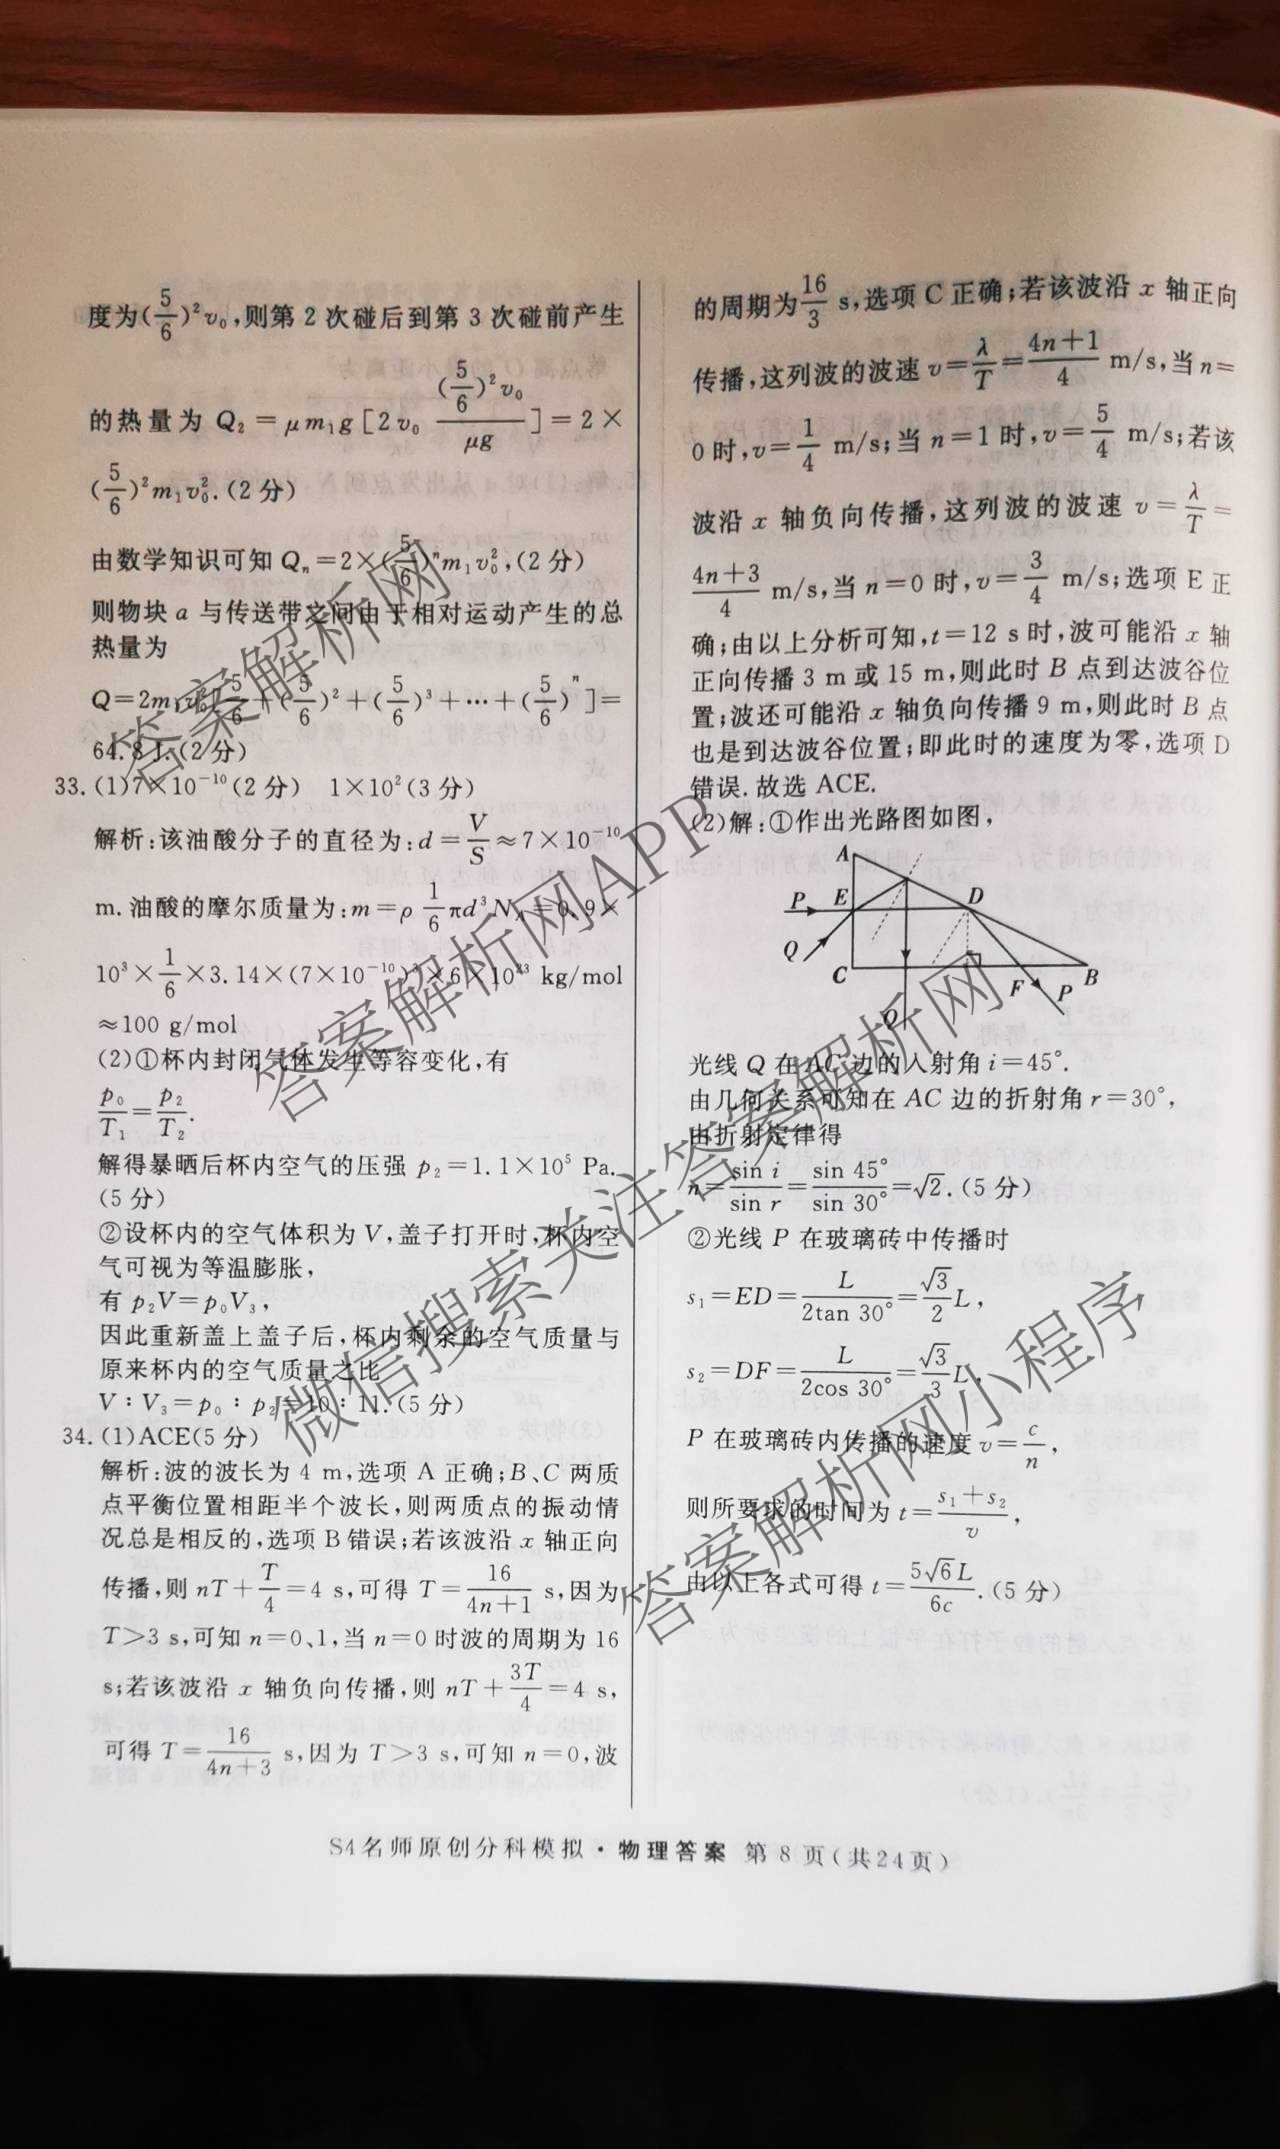 度为(5/6)²v₀,则第2次碰后到第3次碰前产生
的热量为 Q₂=μm₁g[2v₀ (5/6)²v₀/μg]=2×
(5/6)²m₁v₀².(2分)
由数学知识可知Qₙ=2×(5/6)ⁿm₁v₀²,(2分)
则物块a与传送带之间由于相对运动产生的总
热量为
Q=2m₁v₀²[5/6+(5/6)²+(5/6)³+…+(5/6)ⁿ]=
64.8 J.(2分)
33.(1)7×10⁻¹⁰(2分) 1×10²(3分)
解析:该油酸分子的直径为:d=V/S≈7×10⁻¹⁰
m.油酸的摩尔质量为:m=ρ 1/6 πd³N_A=0.9×
10³×1/6×3.14×(7×10⁻¹⁰)³×6×10²³ kg/mol
≈100 g/mol
(2)①杯内封闭气体发生等容变化,有
p₀/T₁=p₂/T₂.
解得暴晒后杯内空气的压强 p₂=1.1×10⁵ Pa.
(5分)
②设杯内的空气体积为V,盖子打开时,杯内空
气可视为等温膨胀,
有 p₂V=p₀V₃,
因此重新盖上盖子后,杯内剩余的空气质量与
原来杯内的空气质量之比
V∶V₃=p₀∶p₂=10∶11.(5分)
34.(1)ACE(5分)
解析:波的波长为4 m,选项A正确;B、C两质
点平衡位置相距半个波长,则两质点的振动情
况总是相反的,选项B错误;若该波沿x轴正向
传播,则nT+T/4=4 s,可得T=16/(4n+1) s,因为
T>3 s,可知n=0、1,当n=0时波的周期为16
s;若该波沿x轴负向传播,则nT+3T/4=4 s,
可得T=16/(4n+3) s,因为T>3 s,可知n=0,波
的周期为16/3 s,选项C正确;若该波沿x轴正向
传播,这列波的波速v=λ/T=(4n+1)/4 m/s,当n=
0时,v=1/4 m/s;当n=1时,v=5/4 m/s;若该
波沿x轴负向传播,这列波的波速v=λ/T=
(4n+3)/4 m/s,当n=0时,v=3/4 m/s;选项E正
确;由以上分析可知,t=12 s时,波可能沿x轴
正向传播3 m或15 m,则此时B点到达波谷位
置;波还可能沿x轴负向传播9 m,则此时B点
也是到达波谷位置;即此时的速度为零,选项D
错误.故选ACE.
(2)解:①作出光路图如图,
A
P E D
Q
C B
F P
Q
光线Q在AC边的入射角i=45°.
由几何关系可知在AC边的折射角r=30°,
由折射定律得
n=sin i/sin r=sin 45°/sin 30°=√2.(5分)
②光线P在玻璃砖中传播时
s₁=ED=L/(2tan 30°)=√3/2 L,
s₂=DF=L/(2cos 30°)=√3/3 L,
P在玻璃砖内传播的速度v=c/n,
则所要求的时间为t=(s₁+s₂)/v,
由以上各式可得t=5√6L/6c.(5分)
S4名师原创分科模拟·物理答案 第8页(共24页)
答案解析网
答案解析网APP
微信搜索关注答案解析网
答案解析网小程序